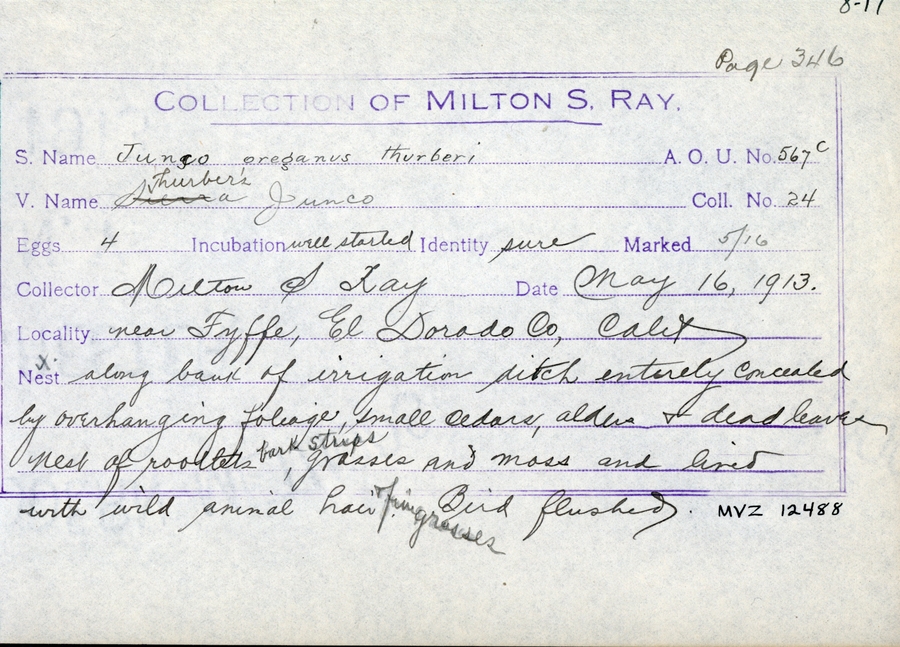 8-17
Page 346
COLLECTION OF MILTON S. RAY.
S. Name Junco oreganus thurberi A. O. U. No. 567c
Thurber's
V. Name Sierra Junco Coll. No. 24
Eggs 4 Incubation well started Identity sure Marked 5/16
Collector Milton S Ray Date May 16, 1913.
Locality near Fyffe, El Dorado Co, Calif
x
Nest along bank of irrigation ditch entirely concealed
by overhanging foliage, small cedars, alders & dead leaves
bark strips
Nest of rootlets, grasses and moss and lined
with wild animal hair & fine grasses. Bird flushed. MVZ 12488